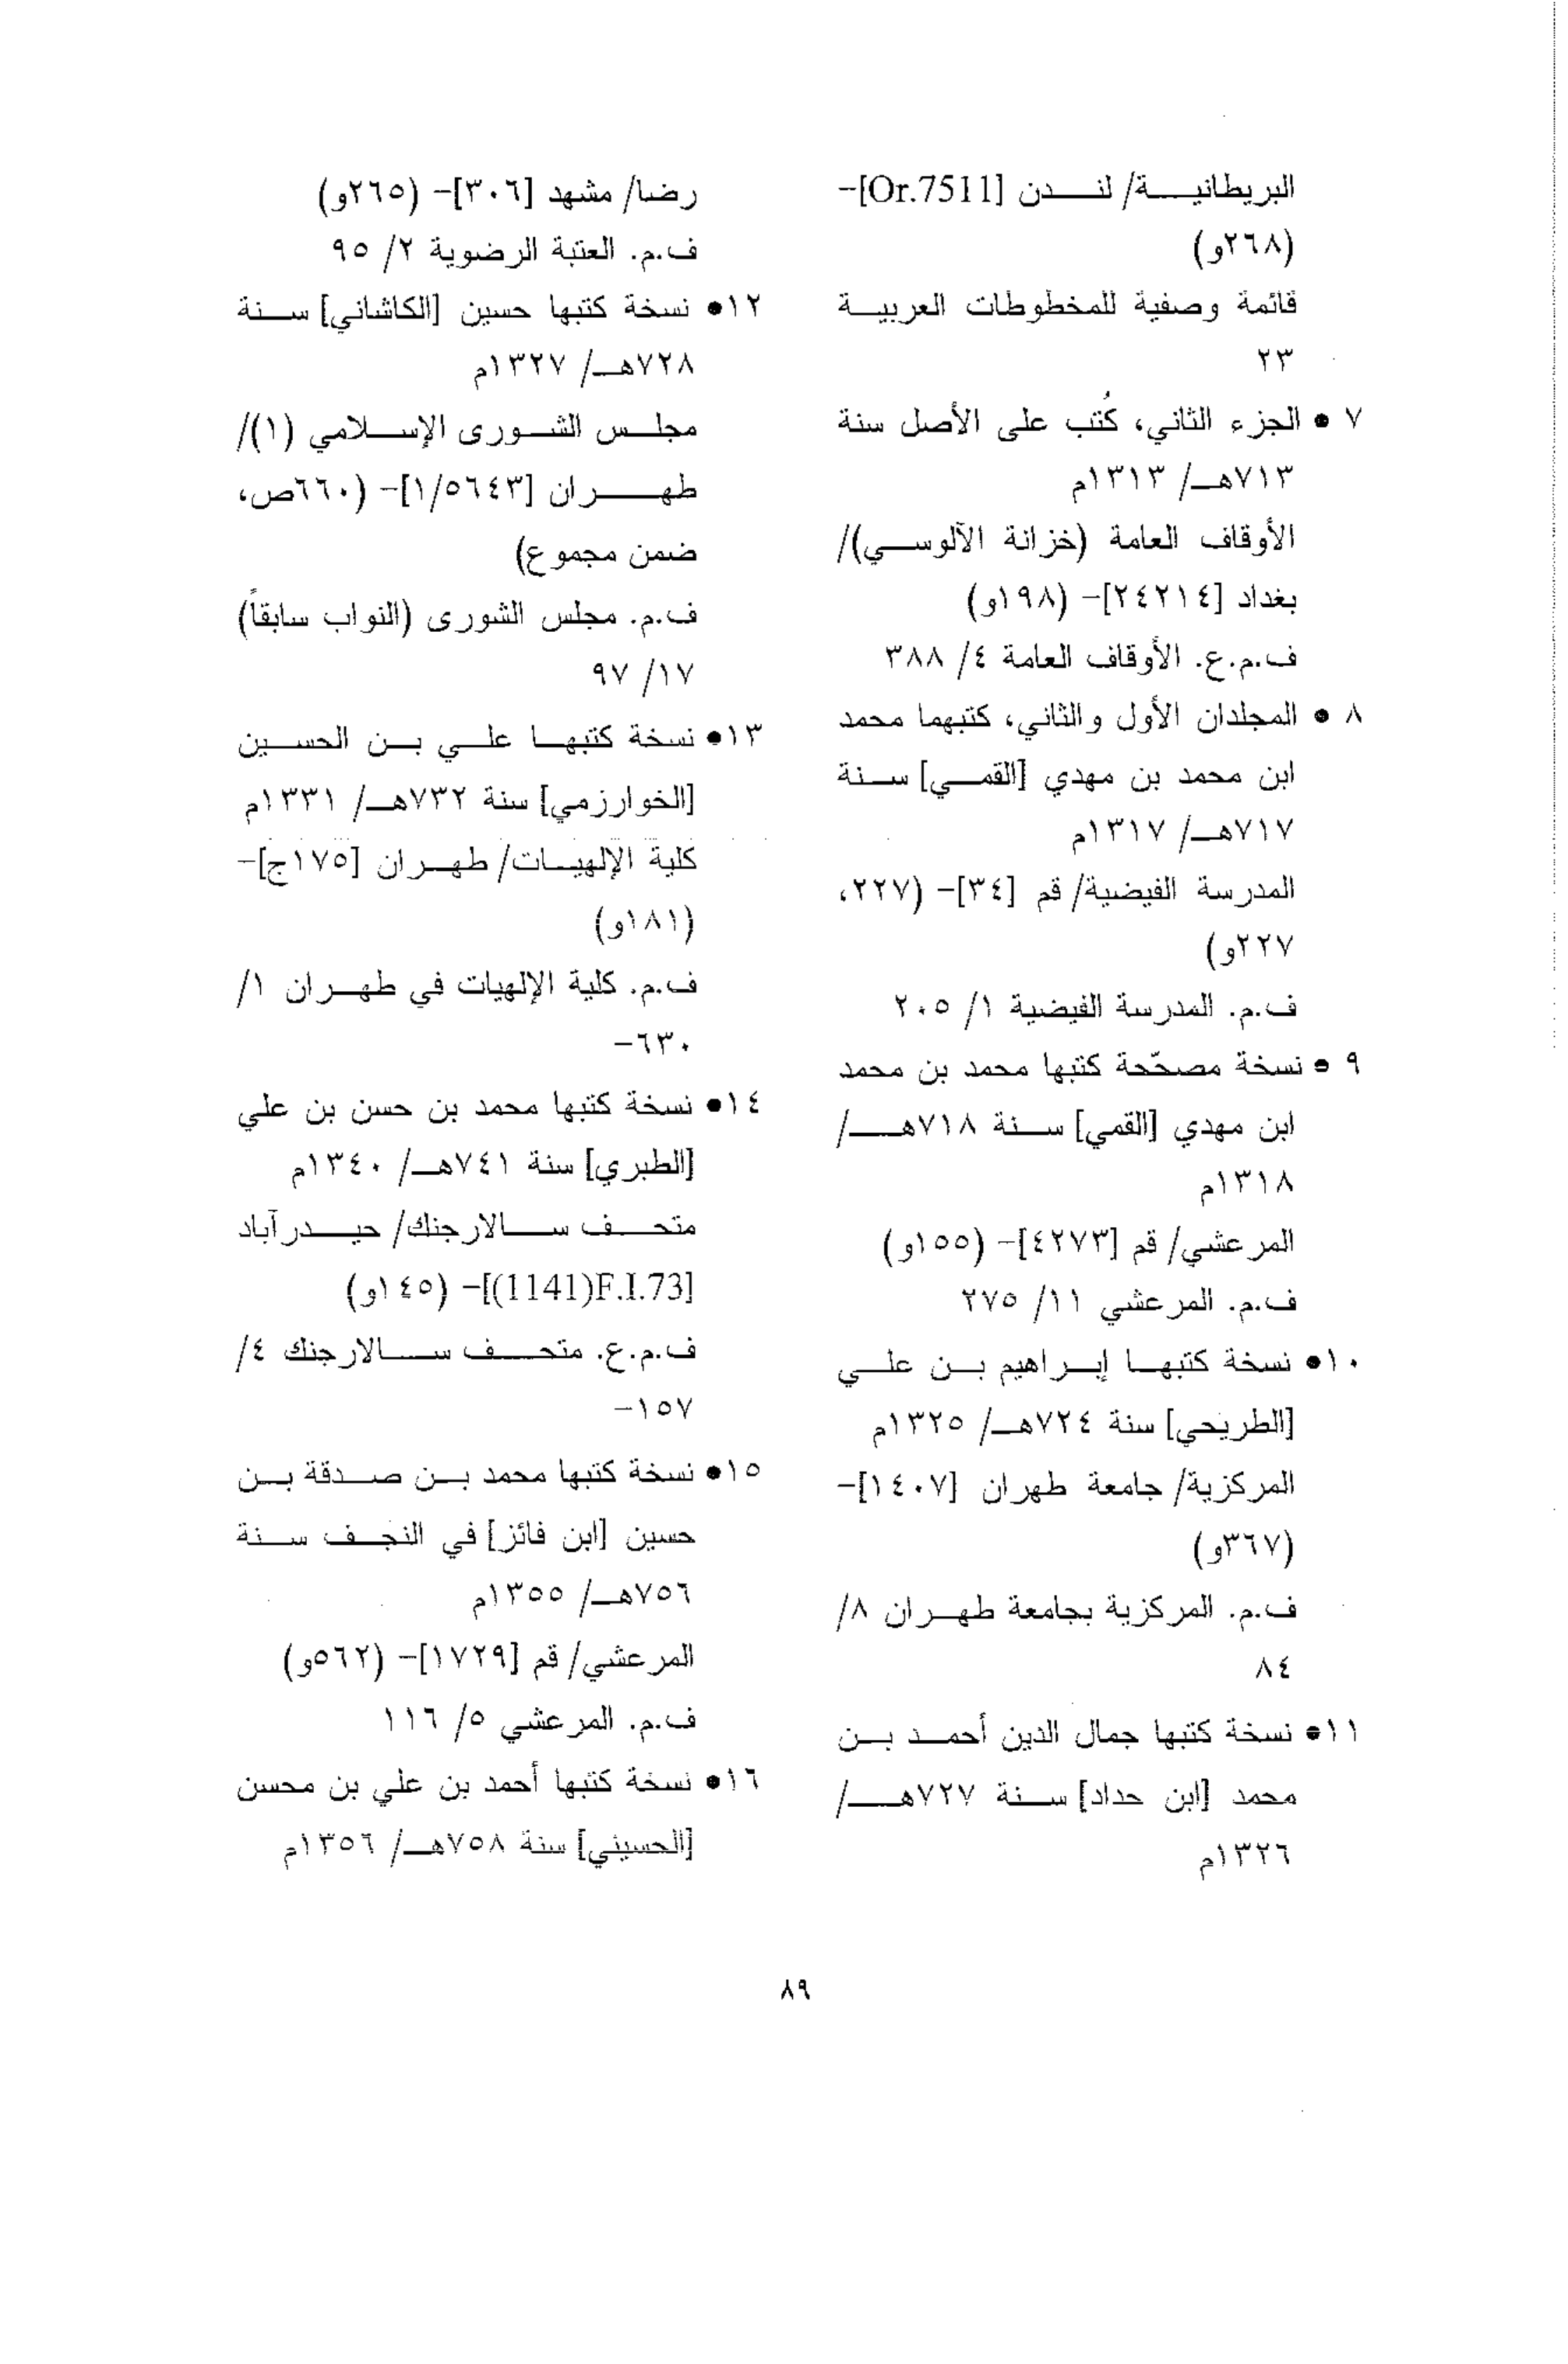 البريطانية/ لندن [Or.7511]-
(٢٦٨و)
قائمة وصفية للمخطوطات العربية
٢٣
٧ • الجزء الثاني، كُتب على الأصل سنة
٧١٣هـ/ ١٣١٣م
الأوقاف العامة (خزانة الآلوسي)/
بغداد [٢٤٢١٤]- (١٩٨و)
ف.م.ع. الأوقاف العامة ٤/ ٣٨٨
٨ • المجلدان الأول والثاني، كتبهما محمد
ابن محمد بن مهدي [القمي] سنة
٧١٧هـ/ ١٣١٧م
المدرسة الفيضية/ قم [٣٤]- (٢٢٧،
٢٢٧و)
ف.م. المدرسة الفيضية ١/ ٢٠٥
٩ • نسخة مصحّحة كتبها محمد بن محمد
ابن مهدي [القمي] سنة ٧١٨هـ/
١٣١٨م
المرعشي/ قم [٤٢٧٣]- (١٥٥و)
ف.م. المرعشي ١١/ ٢٧٥
١٠• نسخة كتبها إبراهيم بن علي
[الطريحي] سنة ٧٢٤هـ/ ١٣٢٥م
المركزية/ جامعة طهران [١٤٠٧]-
(٣٦٧و)
ف.م. المركزية بجامعة طهران ٨/
٨٤
١١• نسخة كتبها جمال الدين أحمد بن
محمد [ابن حداد] سنة ٧٢٧هـ/
١٣٢٦م
رضا/ مشهد [٣٠٦]- (٢٦٥و)
ف.م. العتبة الرضوية ٢/ ٩٥
١٢• نسخة كتبها حسين [الكاشاني] سنة
٧٢٨هـ/ ١٣٢٧م
مجلس الشورى الإسلامي (١)/
طهران [١/٥٦٤٣]- (٦٦٠ص،
ضمن مجموع)
ف.م. مجلس الشورى (النواب سابقاً)
١٧/ ٩٧
١٣• نسخة كتبها علي بن الحسين
[الخوارزمي] سنة ٧٣٢هـ/ ١٣٣١م
كلية الإلهيات/ طهران [١٧٥ج]-
(١٨١و)
ف.م. كلية الإلهيات في طهران ١/
٦٣٠-
١٤• نسخة كتبها محمد بن حسن بن علي
[الطبري] سنة ٧٤١هـ/ ١٣٤٠م
متحف سالارجنك/ حيدرآباد
[F.I.73(1141)]- (١٤٥و)
ف.م.ع. متحف سالارجنك ٤/
١٥٧-
١٥• نسخة كتبها محمد بن صدقة بن
حسين [ابن فائز] في النجف سنة
٧٥٦هـ/ ١٣٥٥م
المرعشي/ قم [١٧٢٩]- (٥٦٢و)
ف.م. المرعشي ٥/ ١١٦
١٦• نسخة كتبها أحمد بن علي بن محسن
[الحسيني] سنة ٧٥٨هـ/ ١٣٥٦م
٨٩